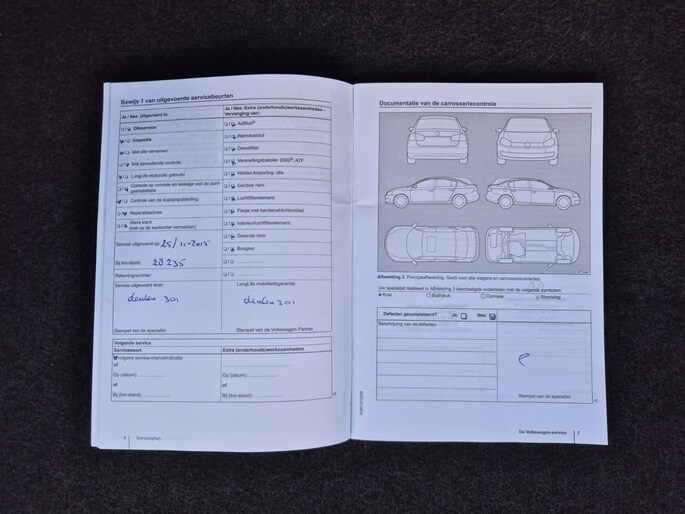 Bewijs 1 van uitgevoerde servicebeurten
Ja / Nee Uitgevoerd is:
Olieservice
Inspectie
Met olie verversen
Met aanvullende controle
LongLife motorolie gebruikt
Controle op corrosie en lekkage van de aard-
gasinstallatie
Controle van de koplampafstelling
Reparatieadvies
Wens klant
(ook op de werkorder vermelden)
Service uitgevoerd op: 25/11-2015
Bij km-stand: 29 235
Rekeningnummer:
Service uitgevoerd door:
Stempel van de specialist
Ja / Nee Extra (onderhouds)werkzaamheden -
Vervanging van:
AdBlue®
Remvloeistof
Dieselfilter
Versnellingsbakolie: DSG®, ATF
Haldex-koppeling: olie
Getande riem
Luchtfilterelement
Flesje met bandenafdichtmiddel
Interieurluchtfilterelement
Bougies
LongLife mobiliteitsgarantie:
Stempel van de Volkswagen Partner
Volgende service
Servicesoort
Extra (onderhouds)werkzaamheden
volgens service-intervalindicatie
of
Op (datum):
Op (datum):
of
of
Bij (km-stand):
Bij (km-stand):
6
Serviceplan
Documentatie van de carrosseriecontrole
Afbeelding 3 Principeafbeelding. Geldt voor alle wagens en carrosserievarianten.
Uw specialist markeert in Afbeelding 3 beschadigde onderdelen met de volgende symbolen:
Kras
Corrosie
Steenslag
Defecten geconstateerd?
Ja:
Nee:
Beschrijving van de defecten:
Stempel van de specialist
De Volkswagen-service
7